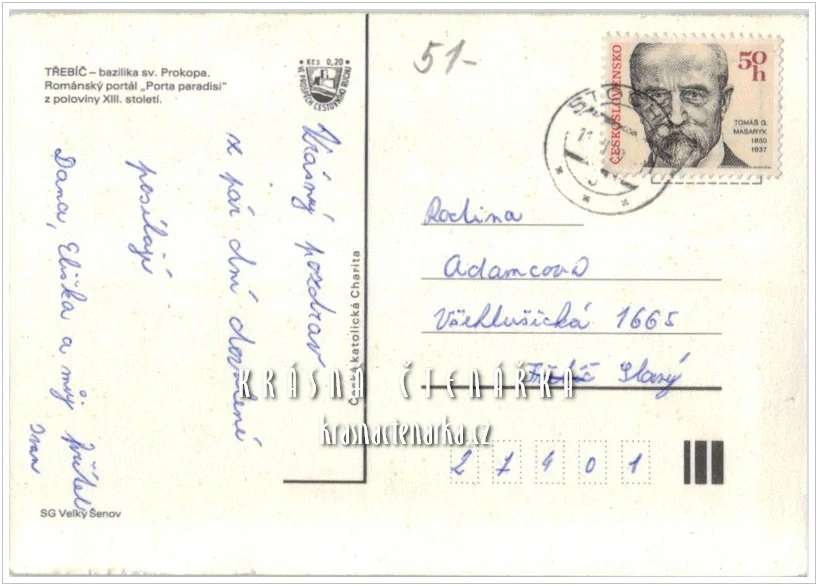 TŘEBÍČ – bazilika sv. Prokopa.
Románský portál „Porta paradisi“
z poloviny XIII. století.
Kčs 0,20
VE PROSPĚCH CESTOVNÍHO RUCHU
51-
ČESKOSLOVENSKO
50
h
TOMÁŠ G.
MASARYK
1850
1937
Krásný pozdrav
z pár dní dovolené
posílají
Dana, Eliška a můj přítel
Ivan
Česká katolická Charita
Rodina
Adamcova
Všehlušická 1665
Slaný
27401
KRÁSNÁ ČTENÁŘKA
krasnactenarka.cz
SG Velký Šenov